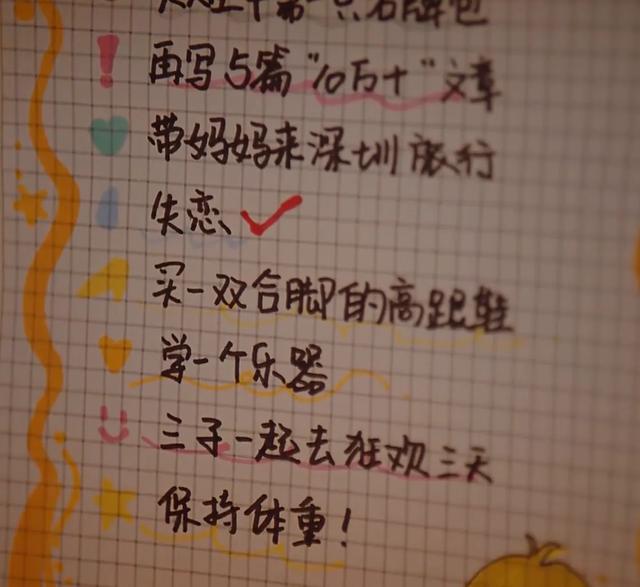 第一只名牌包
再写5篇“10万+”文章
带妈妈来深圳旅行
失恋
买一双合脚的高跟鞋
学一个乐器
三子一起去狂欢三天
保持体重！